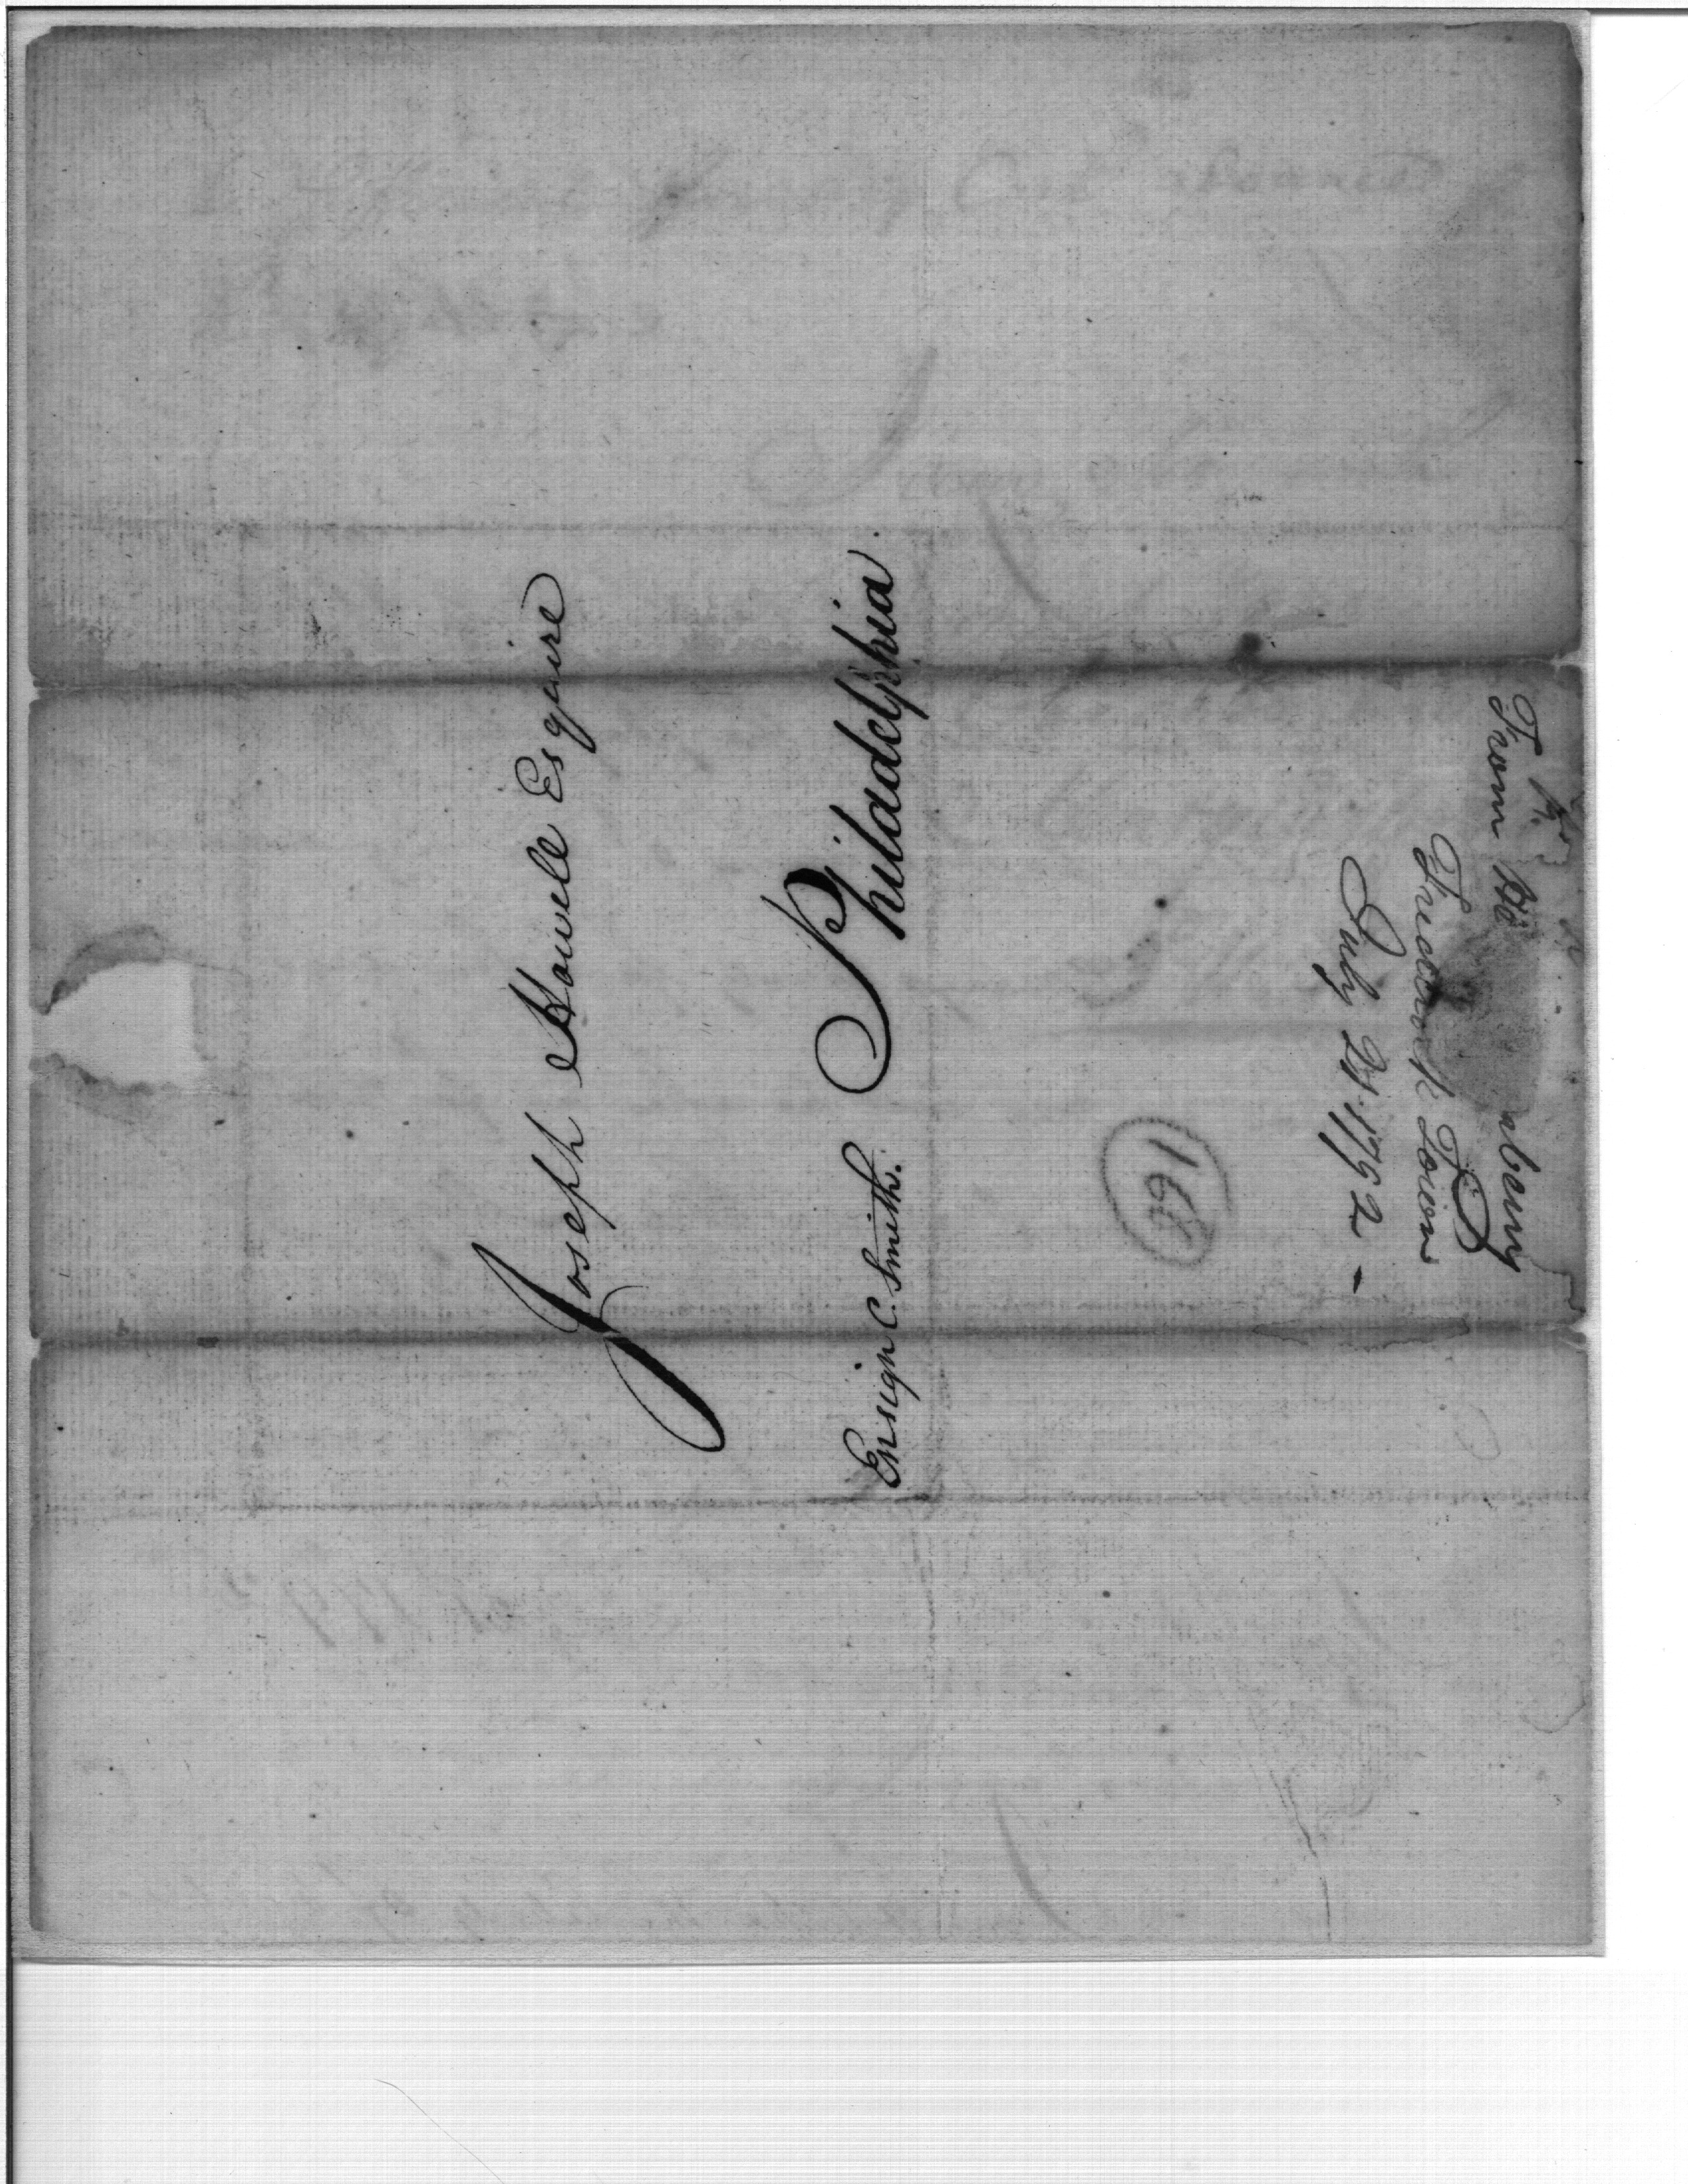 Joseph Howell Esquire
Philadelphia.
Ensign C. Smith.
168
From
Frederick Town
July 1792 -